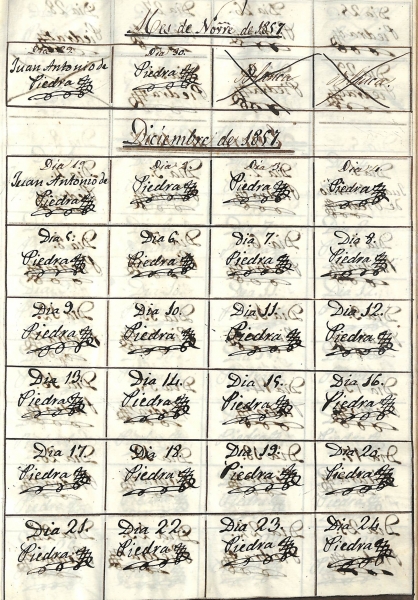 Mes de Novre de 1857
Dia 29. Dia 30.
Juan Antonio de
Piedra Piedra
Diciembre de 1857
Dia 1º Dia 2. Dia 3. Dia 4.
Juan Antonio de
Piedra Piedra Piedra Piedra
Dia 5. Dia 6. Dia 7. Dia 8.
Piedra Piedra Piedra Piedra
Dia 9. Dia 10. Dia 11. Dia 12.
Piedra Piedra Piedra Piedra
Dia 13. Dia 14. Dia 15. Dia 16.
Piedra Piedra Piedra Piedra
Dia 17. Dia 18. Dia 19. Dia 20.
Piedra Piedra Piedra Piedra
Dia 21. Dia 22. Dia 23. Dia 24.
Piedra Piedra Piedra Piedra